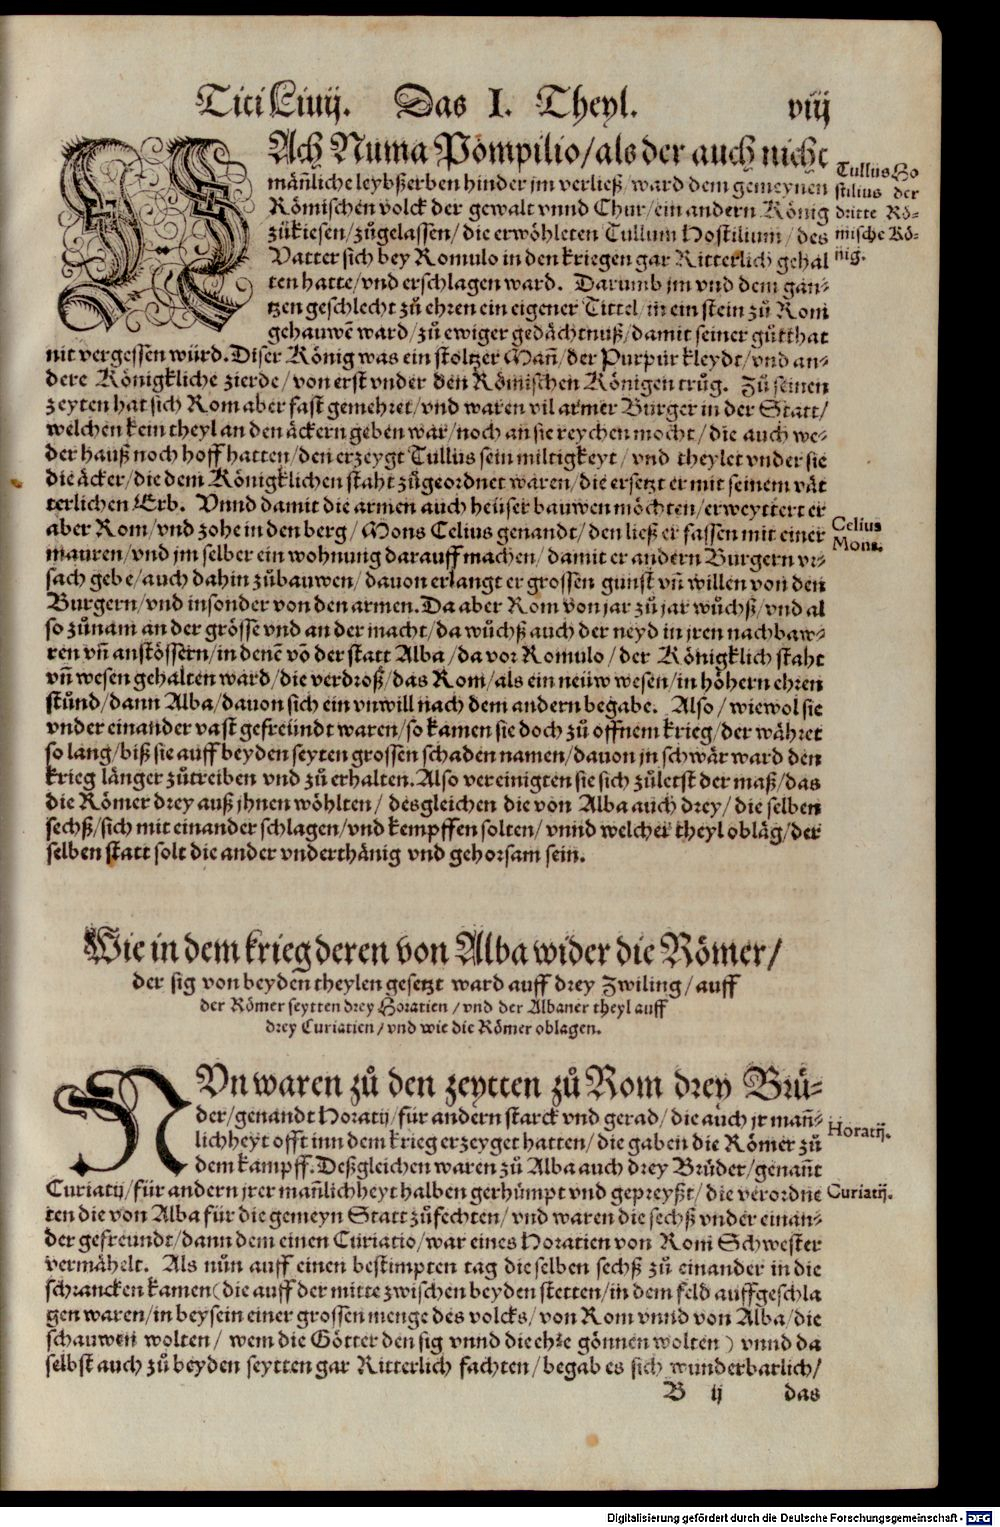 Titi Liuij. Das I. Theyl. viij
NAch Numa Pompilio/als der auch nicht
mäñliche leybßerben hinder jm verließ/ward dem gemeynen
Römischen volck der gewalt vnnd Chur/ein andern König
zůkiesen/zůgelassen/die erwöhleten Tullum Hostilium/des
Vatter sich bey Romulo in den kriegen gar Ritterlich gehal
ten hatte/vnd erschlagen ward. Darumb jm vnd dem gan-
tzen geschlecht zů ehren ein eigener Tittel/in ein stein zů Rom
gehauwē ward/zů ewiger gedächtnuß/damit seiner gůtthat
nit vergessen würd. Diser König was ein stoltzer Mañ/der Purpur kleydt/vnd an-
dere Königkliche zierde/von erst vnder den Römischen Königen trůg. Zů seinen
zeyten hat sich Rom aber fast gemehret/vnd waren vil armer Burger in der Statt/
welchen kein theyl an den äckern geben war/noch an sie reychen mocht/die auch we-
der hauß noch hoff hatten/den erzeygt Tullus sein miltigkeyt/vnd theylet vnder sie
die äcker/die dem Königklichen staht zůgeordnet waren/die ersetzt er mit seinem vät
terlichen Erb. Vnnd damit die armen auch heüser bauwen möchten/erweyttert er
aber Rom/vnd zohe in den berg/Mons Celius genandt/den ließ er fassen mit einer
mauren/vnd jm selber ein wohnung darauff machen/damit er andern Burgern vr-
sach gebe/auch dahin zůbauwen/dauon erlangt er grossen gunst vñ willen von den
Burgern/vnd insonder von den armen. Da aber Rom von jar zů jar wůchß/vnd al
so zůnam an der grösse vnd an der macht/da wůchß auch der neyd in jren nachbaw-
ren vñ anstössern/in denē vō der statt Alba/da vor Romulo/der Königklich staht
vñ wesen gehalten ward/die verdroß/das Rom/als ein neüw wesen/in höhern ehren
stůnd/dann Alba/dauon sich ein vnwill nach dem andern begabe. Also/wiewol sie
vnder einander vast gefreündt waren/so kamen sie doch zů offnem krieg/der währet
so lang/biß sie auff beyden seyten grossen schaden namen/dauon jn schwär ward den
krieg länger zůtreiben vnd zů erhalten. Also vereinigten sie sich zůletst der maß/das
die Römer drey auß jhnen wöhlten/desgleichen die von Alba auch drey/die selben
sechß/sich mit einander schlagen/vnd kempffen solten/vnnd welcher theyl obläg/der
selben statt solt die ander vnderthänig vnd gehorsam sein.
Tullus Ho
stilius der
dritte Rö-
mische Kö-
nig.
Celius
Mons.
Wie in dem krieg deren von Alba wider die Römer/
der sig von beyden theylen gesetzt ward auff drey Zwiling/auff
der Römer seytten drey Horatien/vnd der Albaner theyl auff
drey Curiatien/vnd wie die Römer oblagen.
NVn waren zů den zeytten zů Rom drey Brü-
der/genandt Horatij/für andern starck vnd gerad/die auch jr mañ-
lichheyt offt inn dem krieg erzeyget hatten/die gaben die Römer zů
dem kampff. Deßgleichen waren zů Alba auch drey Brüder/genañt
Curiatij/für andern jrer mañlichheyt halben gerhümpt vnd gepreyßt/die verordne
ten die von Alba für die gemeyn Statt zůfechten/vnd waren die sechß vnder einan-
der gefreundt/dann dem einen Curiatio/war eines Horatien von Rom Schwester
vermähelt. Als nůn auff einen bestimpten tag die selben sechß zů einander in die
schrancken kamen (die auff der mitte zwischen beyden stetten/in dem feld auffgeschla
gen waren/in beysein einer grossen menge des volcks/von Rom vnnd von Alba/die
schauwen wolten/wem die Götter den sig vnnd die ehre gönnen wolten) vnnd da
selbst auch zů beyden seytten gar Ritterlich fachten/begab es sich wunderbarlich/
Horatij.
Curiatij.
B ij das
Digitalisierung gefördert durch die Deutsche Forschungsgemeinschaft - DFG